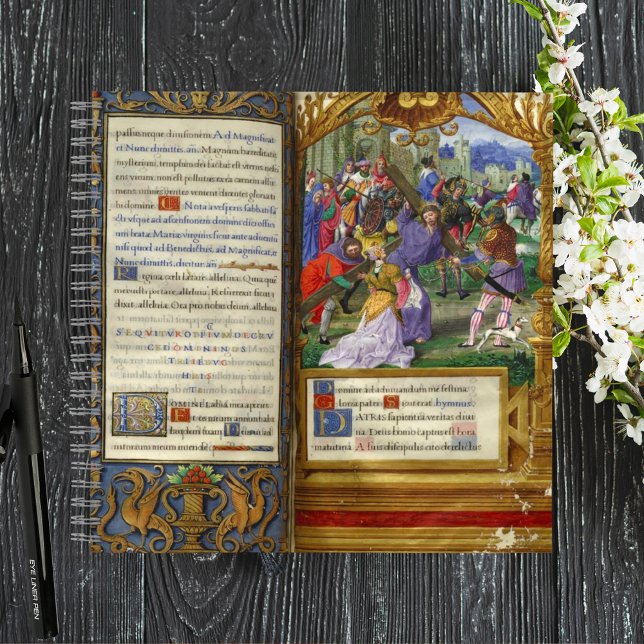 passus neque divisionem. Ad Magnificat
et Nunc dimittis. an. Magnum hereditatis
mysterium, templum dei factus est uterus nesci
ens virum, non est pollutus ex ea carnem assu
mens, omnes gentes venient dicentes gloria ti
bi domine. Nota a vesperis sabbati sa
usque ad ascensionem domini dice offici
um beatæ Mariæ virginis sicut ante adventum
nisi quod ad Benedictus, ad Magnificat, et
Nunc dimittis, dicitur an.
Regina celi lætare, alleluia. Quia quem
meruisti portare, alleluia. Resurrexit sicut
dixit, alleluia. Ora pro nobis deum, alleluia.
C
SEQVITVR OFFICIVM DE CRV
CE DOMINI NOS
TRI IESV
DOMINE labia mea aperies.
Et os meum annuntiabit
laudem tuam. Deus in ad
iutorium meum intende
Domine ad adiuvandum me festina.
Gloria patri Sicut erat hymnus.
PATRIS sapientia veritas divi
na, Deus homo captus est hora
matutina. A suis discipulis cito derelictus
EYE LINER PEN